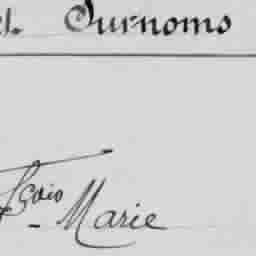 et Surnoms
Fçois
- Marie